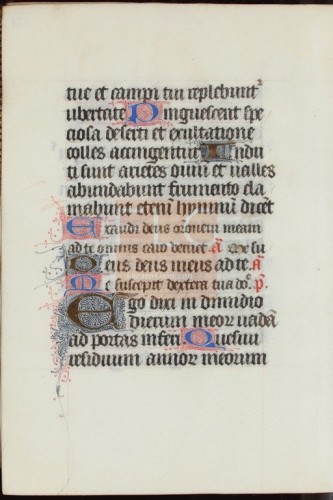 tue et campi tui replebunt
ubertate Pinguescent spe
ciosa deserti et exultatione
colles accingentur Indu
ti sunt arietes ouiu et ualles
abundabunt frumento cla
mabunt etenĩ hymnum dicẽt
Exaudi deus orõnem meam
ad te omnis caro veniet. A Me su
Deus deus meus ad te. A
Me suscepit dextera tua dõ. P
Ego dixi in dimidio
dierum meor uadã
ad portas inferi Quesiui
residuum annor meorum